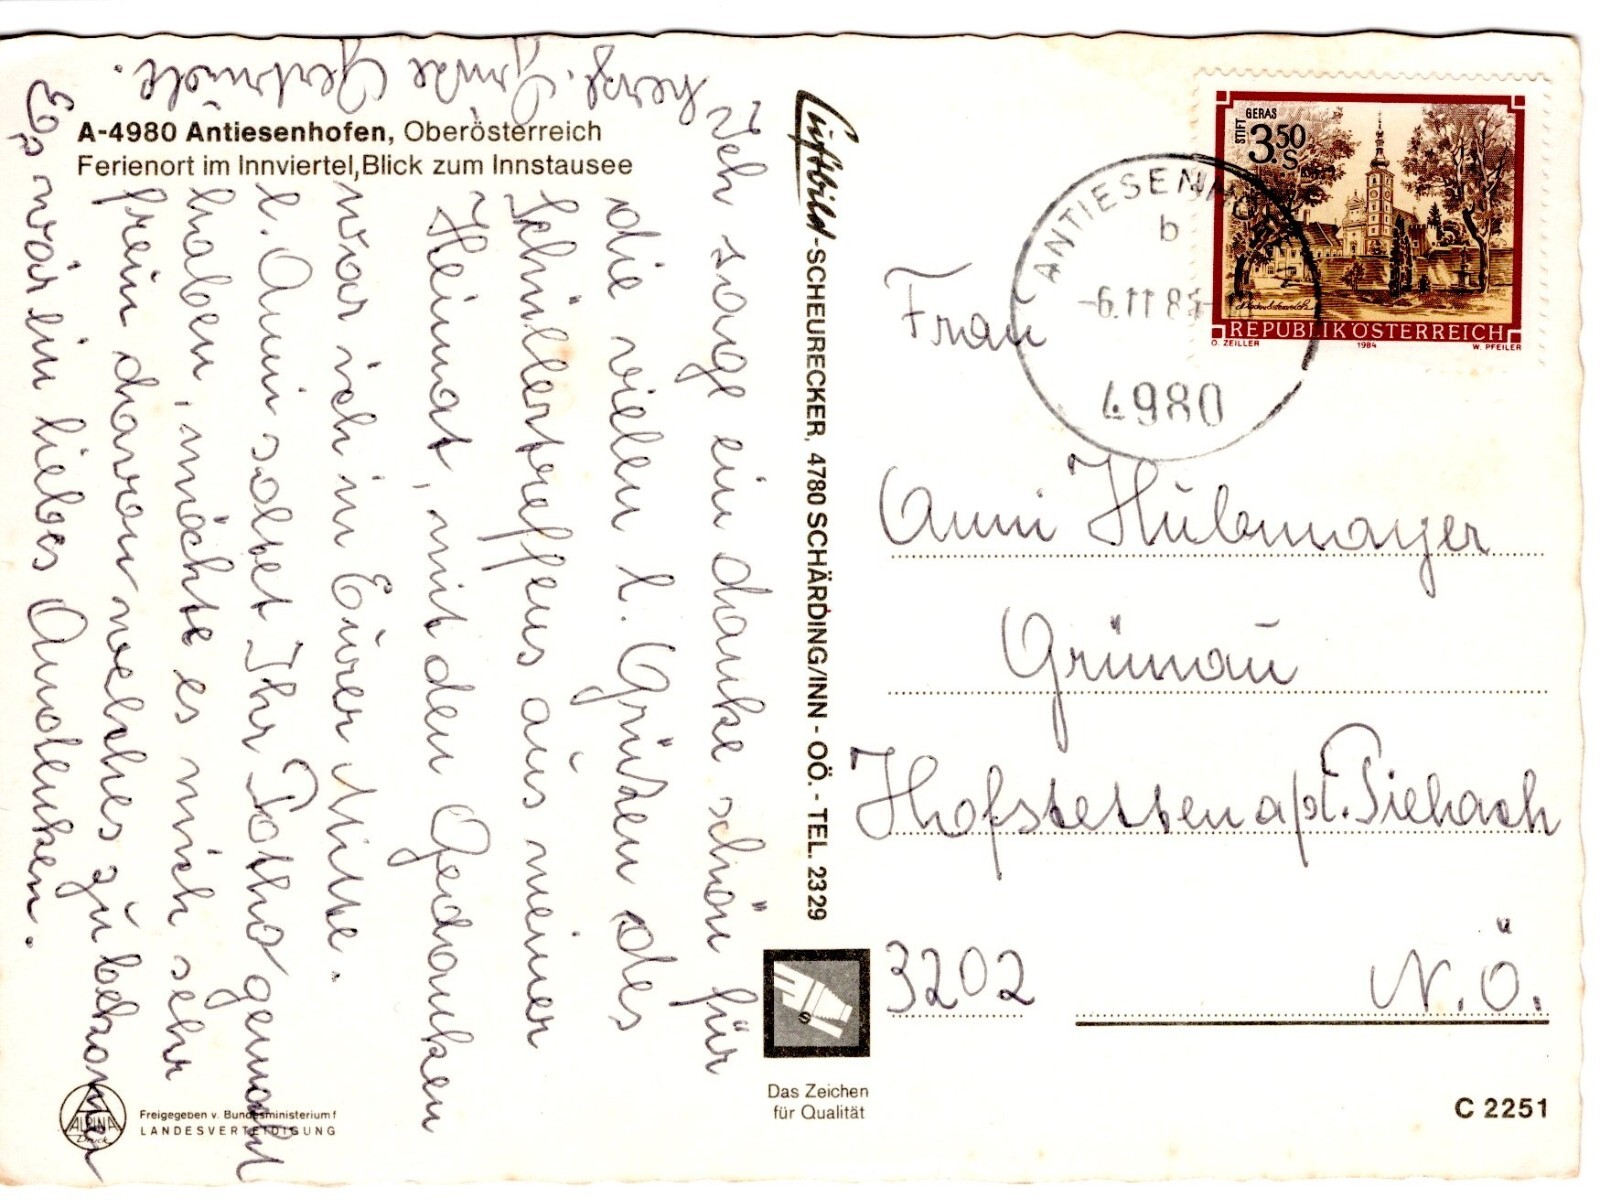 A-4980 Antiesenhofen, Oberösterreich
Ferienort im Innviertel, Blick zum Innstausee
Ich sage ein danke schön für
die vielen l. Grüßen des
Schüllertreffens aus meiner
Heimat, mit den Gedanken
war ich in Eurer Mitte.
l. Anni solbet Ihr Potho gemacht
haben, möchte es mich sehr
freün davon welches zu bekommen
Es wär ein liebes Andenken.
herzl. Grüße Gertrude.
Luftbild-SCHEURECKER, 4780 SCHÄRDING/INN - OÖ. - TEL. 23 29
STIFT GERAS
3.50 S
REPUBLIK ÖSTERREICH
O. ZEILLER 1984 W. PFEILER
ANTIESENHOFEN
b
-6.11 8
4980
Frau
Anni Hülbmayer
Grünau
Hofstetten a/d. Pielach
3202 N.Ö.
Das Zeichen
für Qualität
ALPINA
Druck
Freigegeben v. Bundesministerium f
LANDESVERTEIDIGUNG
C 2251